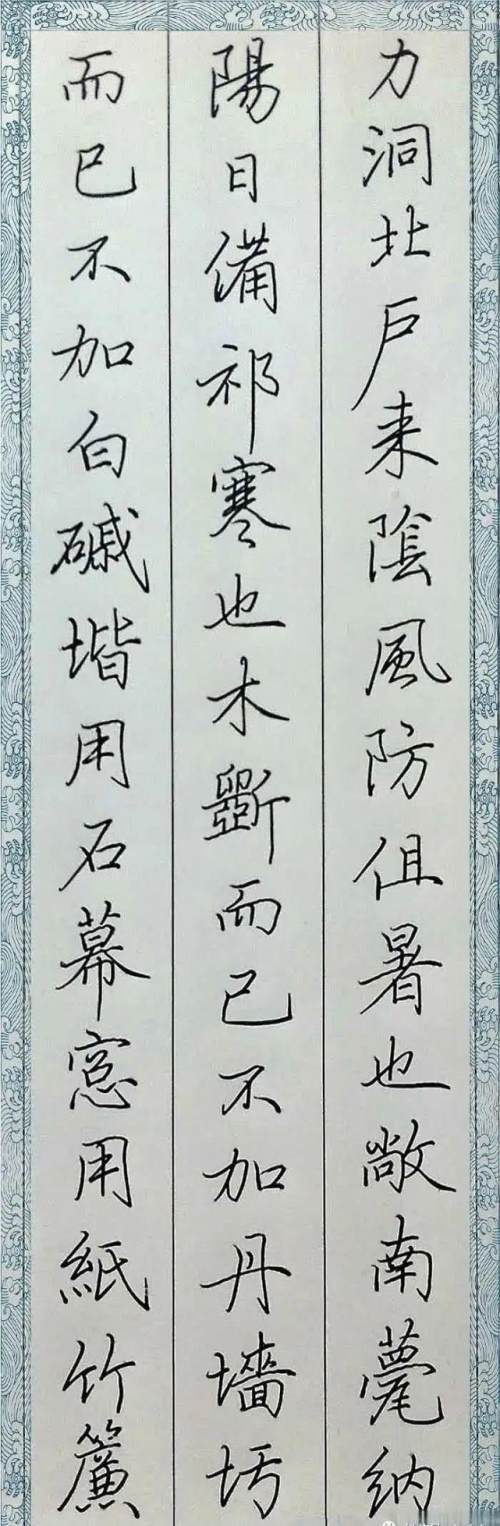 力洞北戶来陰風防伹暑也敞南甍納
陽日備祁寒也木斵而已不加丹墻圬
而已不加白磩堦用石幕窓用紙竹簾